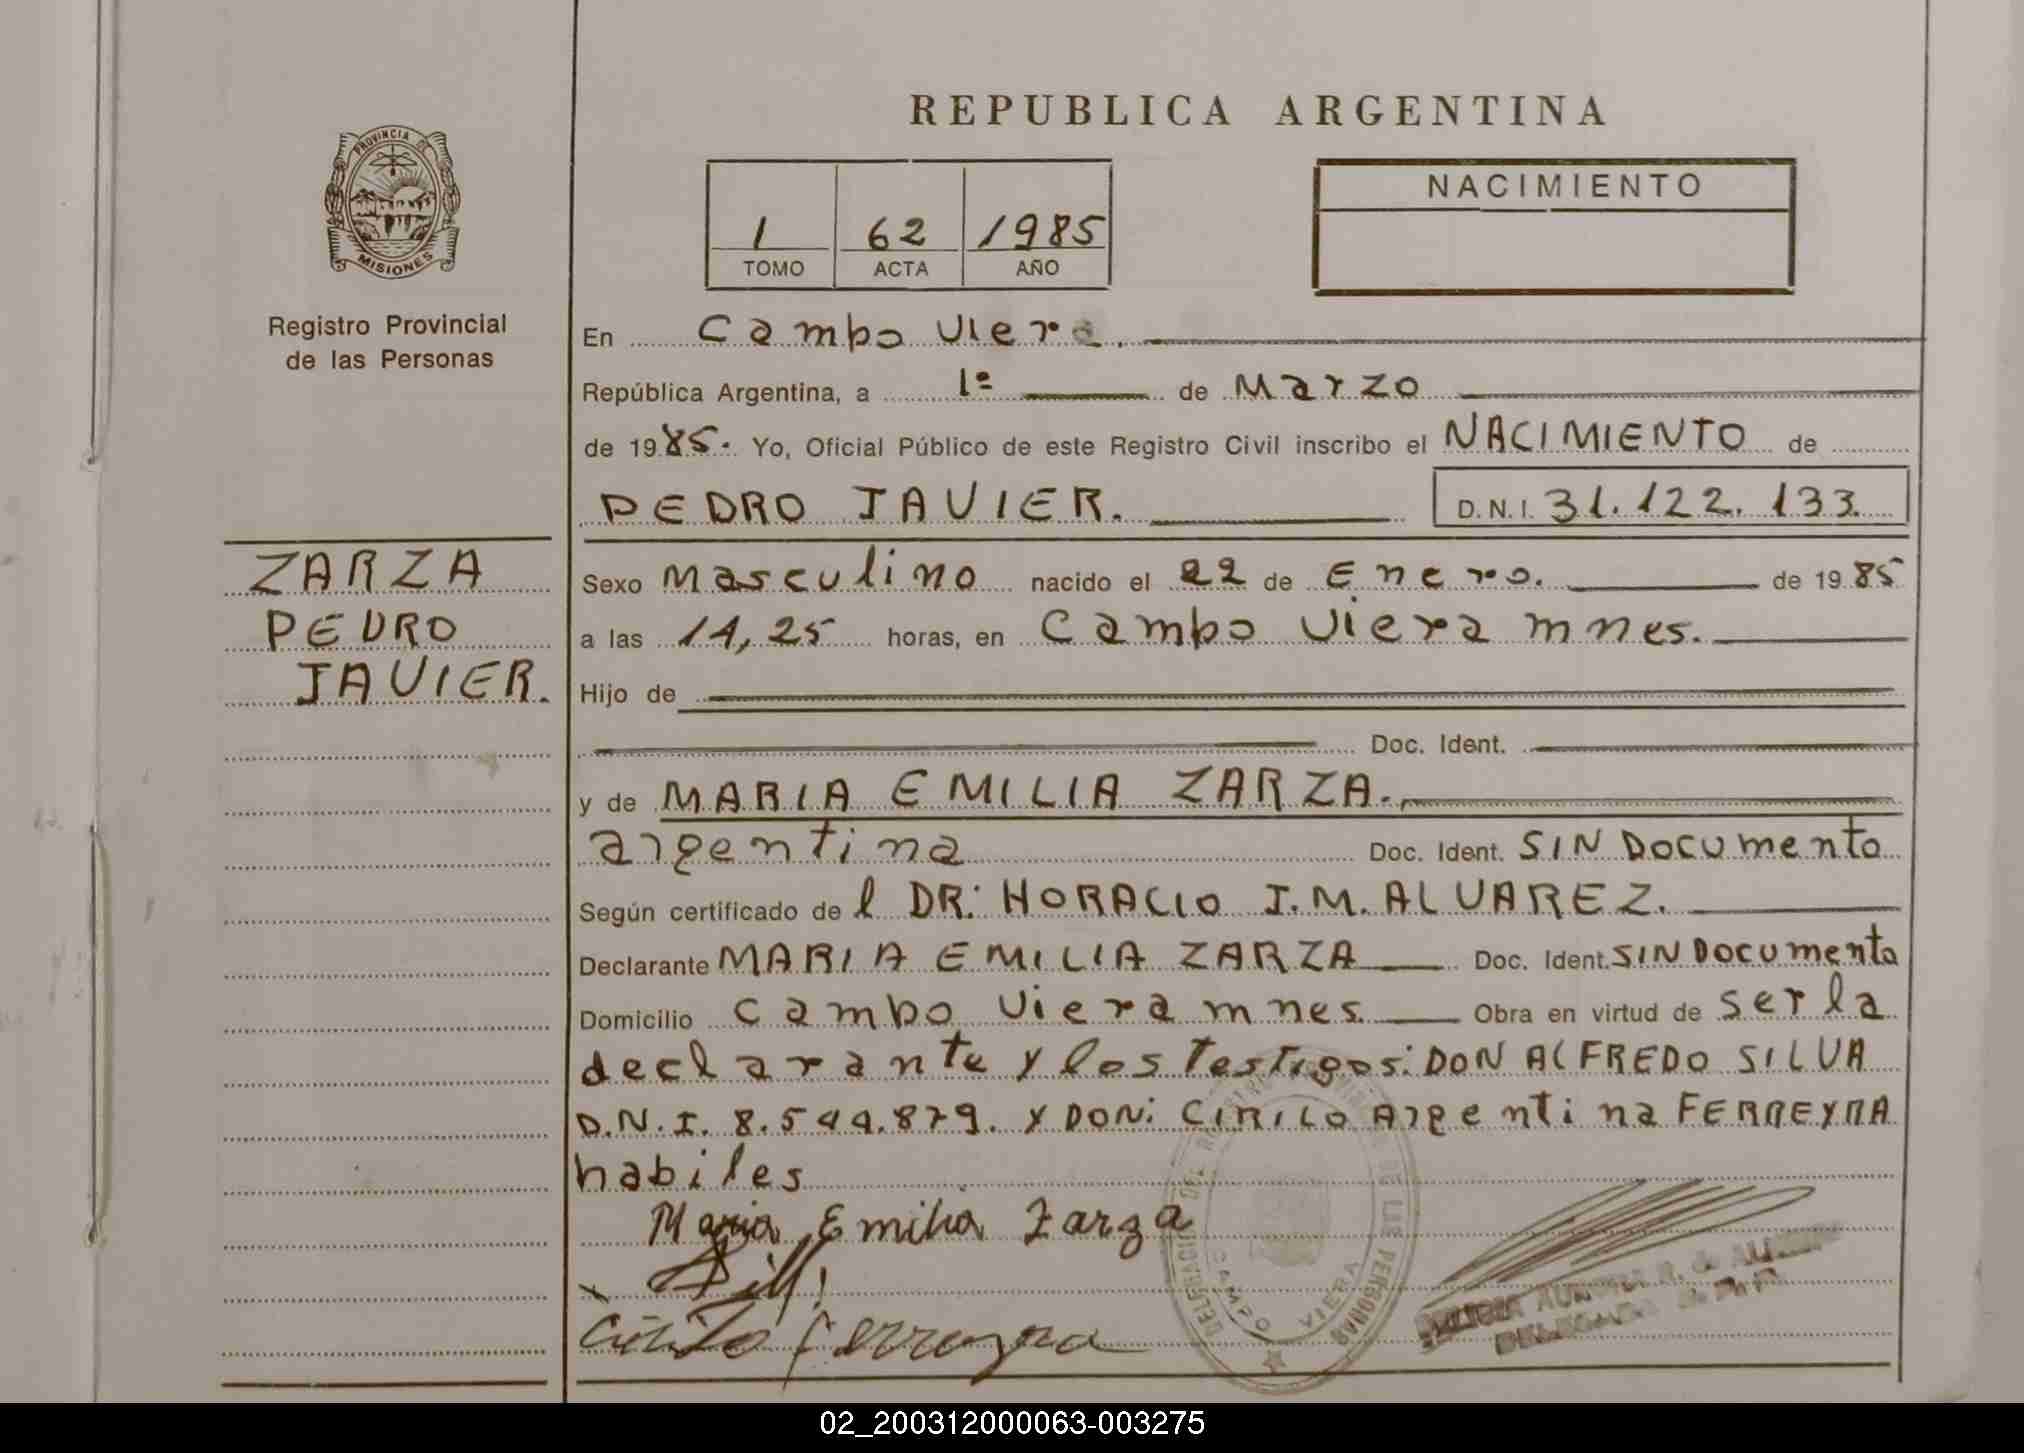 REPUBLICA ARGENTINA
PROVINCIA DE
MISIONES
Registro Provincial
de las Personas
1 62 1985
TOMO ACTA AÑO
NACIMIENTO
En Campo Viera.
República Argentina, a 1º de Marzo
de 1985. Yo, Oficial Público de este Registro Civil inscribo el NACIMIENTO de
PEDRO JAVIER. D.N.I. 31.122.133.
ZARZA
PEDRO
JAVIER.
Sexo Masculino nacido el 22 de Enero. de 1985
a las 14,25 horas, en Campo Viera mnes.
Hijo de
Doc. Ident.
y de MARIA EMILIA ZARZA.
argentina Doc. Ident. SIN Documento
Según certificado de l DR: HORACIO J.M. ALVAREZ.
Declarante MARIA EMILIA ZARZA Doc. Ident. SIN Documento
Domicilio Campo Viera mnes. Obra en virtud de ser la
declarante y los testigos: DON ALFREDO SILVA
D.N.I. 8.544.879. y DON: CIRILO Argentina FERREYRA
habiles
Maria Emilia Zarza
Cirilo Ferreyra
DELEGACION DEL REGISTRO PROVINCIAL DE LAS PERSONAS
CAMPO VIERA
02_200312000063-003275